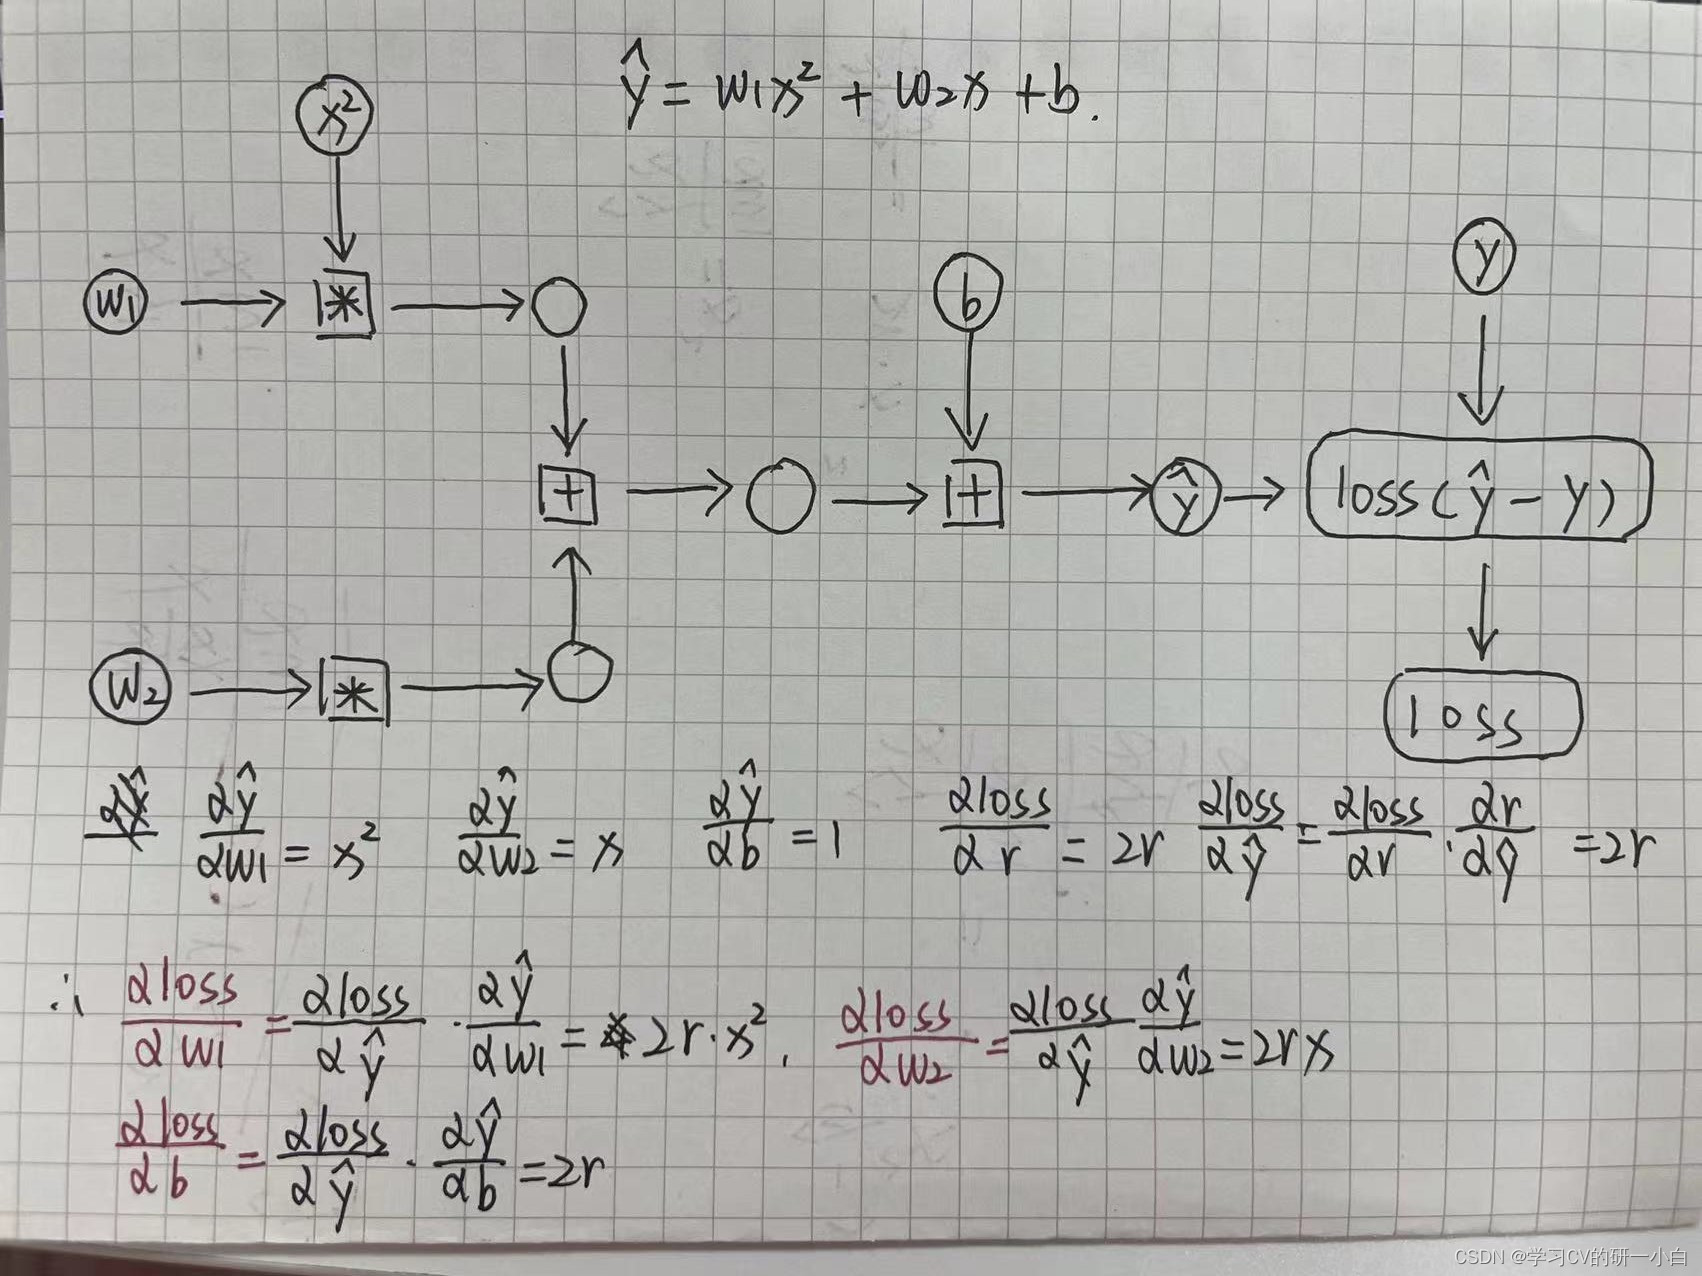 ŷ = w₁x² + w₂x + b.
x²
w₁
*
b
y
+
+
ŷ
loss(ŷ - y)
w₂
*
loss
∂ŷ/∂w₁ = x²  ∂ŷ/∂w₂ = x  ∂ŷ/∂b = 1  ∂loss/∂r = 2r  ∂loss/∂ŷ = ∂loss/∂r · ∂r/∂ŷ = 2r
∴ ∂loss/∂w₁ = ∂loss/∂ŷ · ∂ŷ/∂w₁ = 2r·x², ∂loss/∂w₂ = ∂loss/∂ŷ ∂ŷ/∂w₂ = 2rx
∂loss/∂b = ∂loss/∂ŷ · ∂ŷ/∂b = 2r
CSDN @学习CV的研一小白